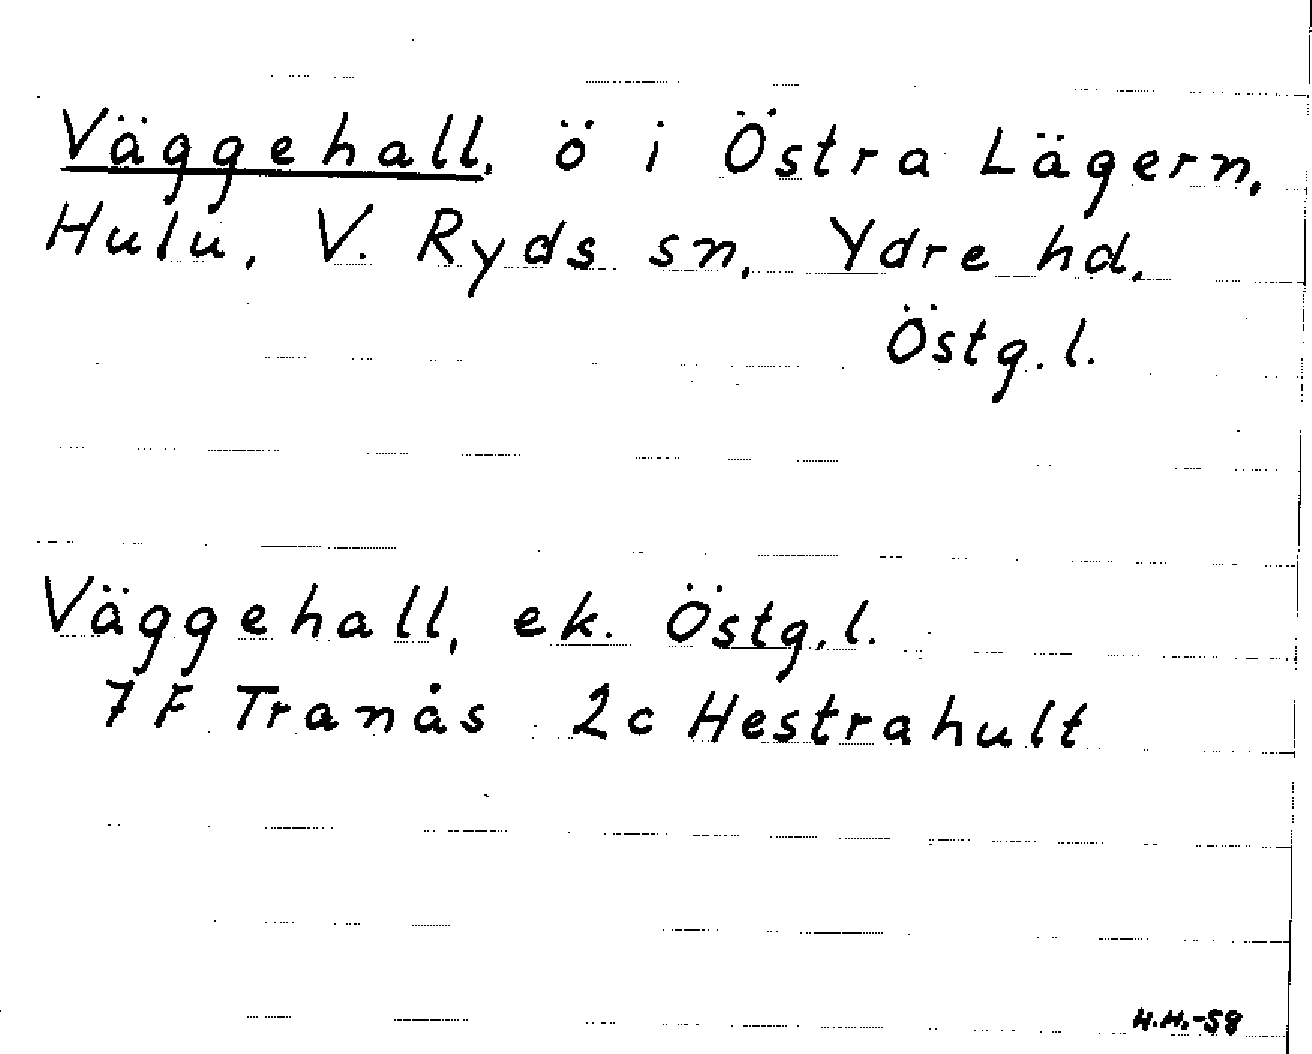 Väggehall, ö i Östra Lägern,
Hulu, V. Ryds sn, Ydre hd,
Östg.l.
Väggehall, ek. Östg.l.
7F Tranås 2c Hestrahult
H.H.-58